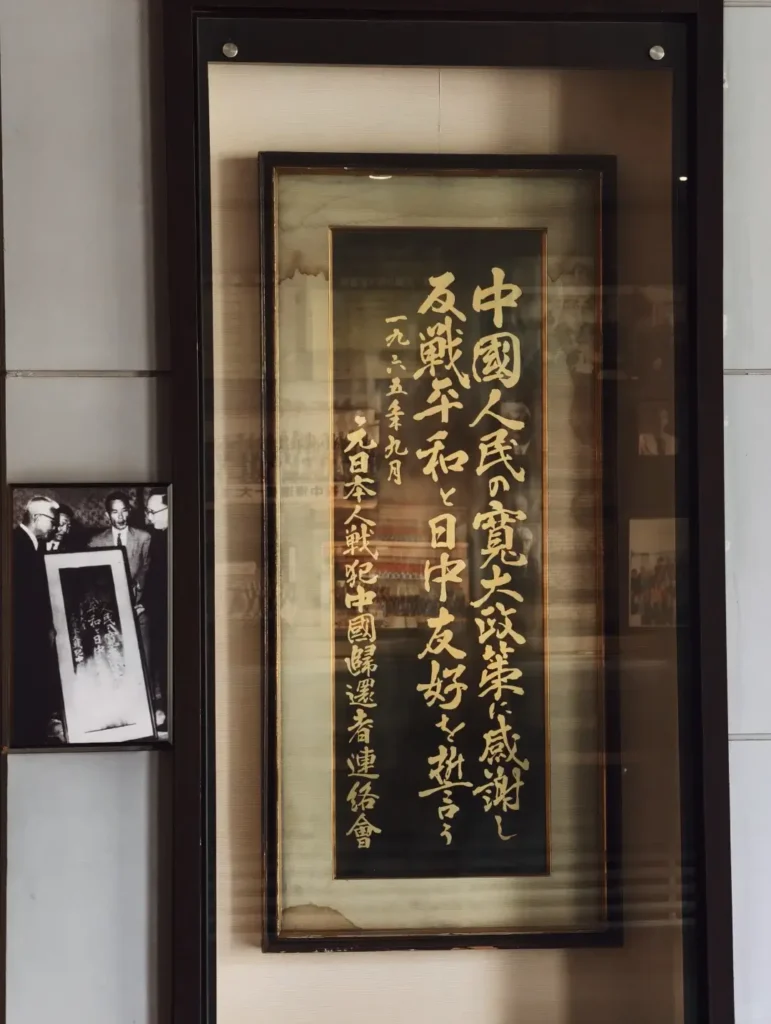 中國人民の寛大政策に感謝し
反戦平和と日中友好を誓う
一九六五年九月
元日本人戦犯中國歸還者連絡會
人民の寛
平和と日中